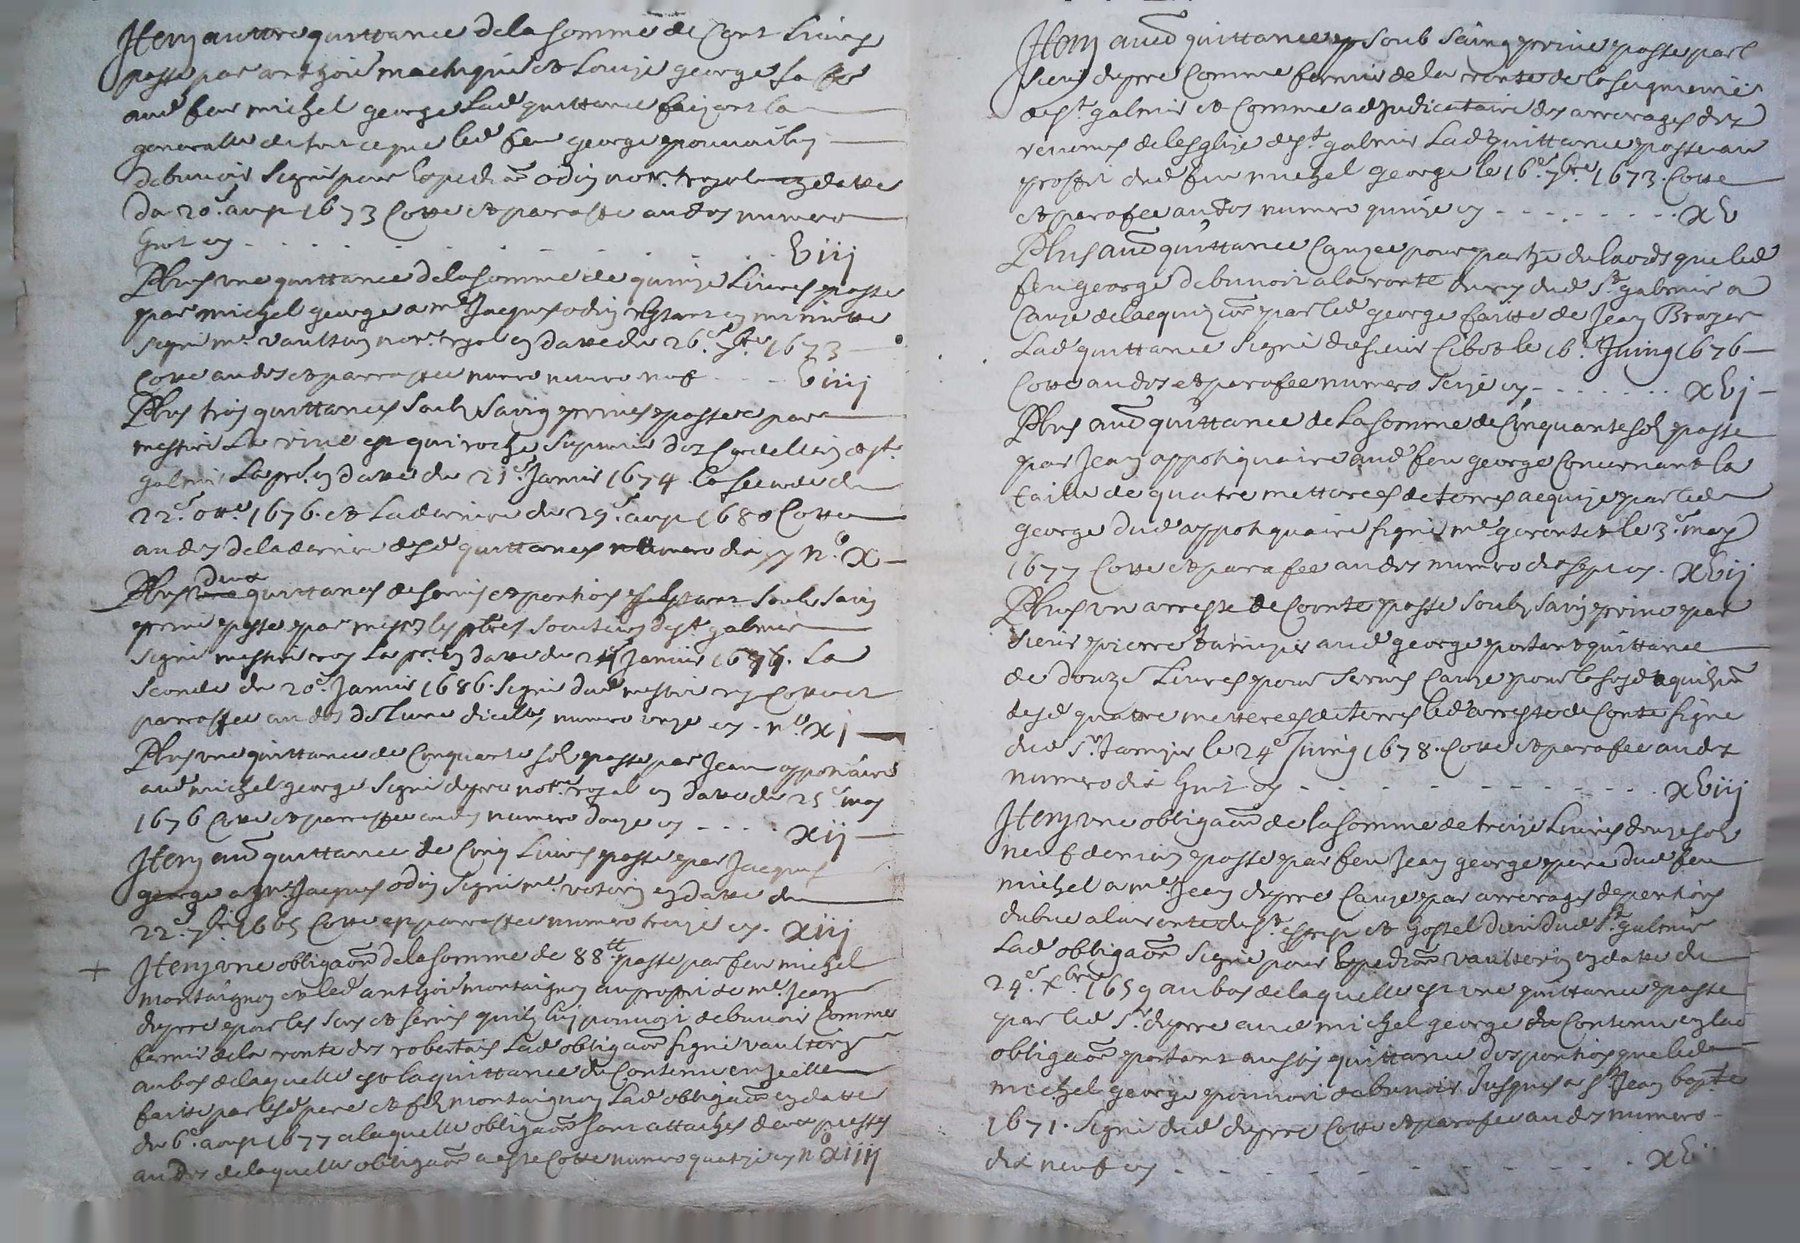 Item auttre quittance de la somme de Cent Livres
passe par anthoine machiquie et Louize george sa fe
aud feu michel george Lad quittance faizant la
generalle de tout ce que led feu george pouvoit luy
debvoir signé pour Expedion odin nore royal en datte
du 20e aup 1673 Cotte et paraffe au dos numero
huit cy - - - - - - - Viij
Plus une quittance de la somme de quinze Livres passe
par michel george a me Jacques odin en minutte
signé me Vaultery nore royal en datte du 26e 1673
Cotte au dos et parraffee numero nuf - - - Viiij
Plus trois quittances soubz saing prives passees par
messire La rive et quiroche superieur des Cordelliers de st
galmier La pre en datte du 21e Janvier 1674 la seconde du
22e 1676 et La derniere du 29e aup 1680 Cotte
au dos de la derniere desd quittances numero dix cy no X
Plus deux quittances de servis et pentions soubz saing
prive passe par messrs les pbres societaires de st galmier
signé messire La pre en datte du Janvier La
seconde du 20e Janvier 1686 signé dud messire Cottees et
parraffee au dos de Lune dicelles numero unze cy - no Xj
Plus une quittance de Cinquante sols passe par Jean appoticaire
aud michel george signé depré nore royal en datte du 25e may
1676 Cotte et parraffee au dos numero douze cy - - - - Xij
Item aud quittance de Cinq Livres passe par Jacques
george a me Jacques odin signé me en datte du
22e 7bre 1665 Cotte et parraffee numero treize cy - Xiij
+ Item une obligaon de la somme de 88tt passe par feu michel
montaignon et led anthoine montaignon au proffit de me Jean
depré pour les et servis quilz luy pouvoit debvoir Comme
fermier de la rente des robertais Lad obligaon signé vaultery
au bas de laquelle est la quittance du Contenu en Jcelle
faitte par lesd pere et filz montaignon Lad obligaon en datte
du 6e aup 1677 a laquelle obligaon sont attachés
au dos de laquelle obligaon a este Cotte numero quatorze cy no Xiiij
Item aud quittance soub saing prive passe par le
sieur depré Comme fermier de la rente de la seigneurie
de st galmier et Comme adjudicataire des arrerages des
revenus de lesglize de st galmier Lad quittance passe au
proffit dud feu michel george le 16e 7bre 1673 Cotte
et parafee au dos numero quinze cy - - - - - - - - XV
Plus aud quittance Cauzee pour partye du laods que led
feu george debvoit a la rente dud st galmier a
Cauze de lacquizon par led george faitte de Jean Brazer
Lad quittance signé du sieur Cibot le 16e Juing 1676
Cotte au dos et parafee numero seize cy - - - - - - - XVj
Plus aud quittance de La somme de Cinquante sols passe
par Jean appotiquaire aud feu george Concernant la
taille de quatre metterees de terres acquize par led
george dud appotiquaire signé me gerentet le 3e may
1677 Cotte et parafee au dos numero dix sept cy - XVij
Plus un arreste de Conte passe soubz saing prive par
sieur pierre aud george portant quittance
de douze Livres pour servis Cauze pour le sujet aquizon
desd quattre metterees de terres led arreste de Conte signé
dud sr le 24e Juing 1678 Cotte et parafee au dos
numero dix huit cy - - - - - - - - - - XViij
Item une obligaon de la somme de treize Livres douze sols
neuf deniers passe par feu Jean george pere dud feu
michel a me Jean depré Cauze par arrerages de pentions
dubue a la rente du st esprit et hostel dieu dud st galmier
Lad obligaon signé pour Expedion vaultery en datte du
24e xbre 1659 au bas de laquelle est une quittance passe
par led sr depré aud michel george du Contenu en lad
obligaon portant aussy quittance des pentions que led
michel george pouvoit debvoir Jusques a st Jean bapte
1671 signé dud depré Cotte et parafee au dos numero
dix neuf cy - - - - - - - - - - -